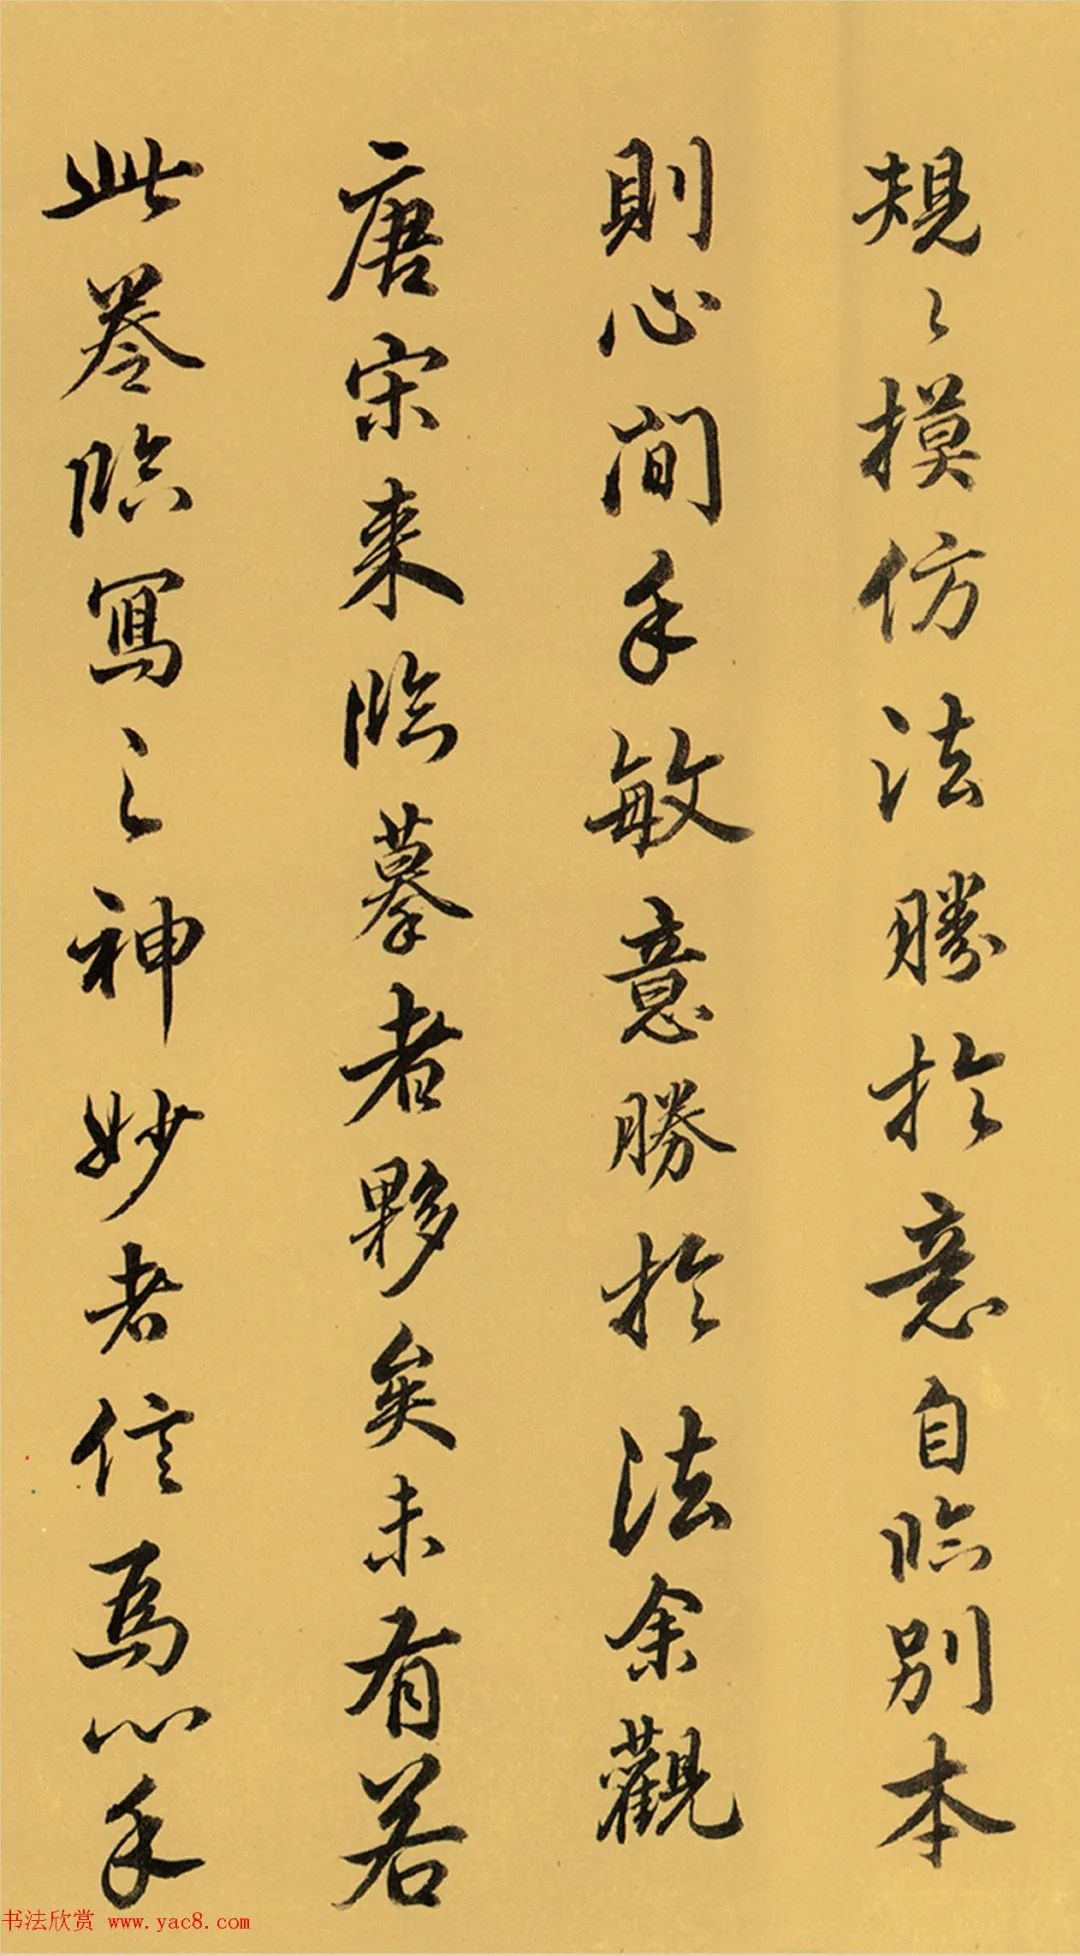 規〻摸仿法勝於意自臨別本
則心閒手敏意勝於法余觀
唐宋來臨摹者夥矣未有若
此卷臨寫之神妙者信為心手
书法欣赏 www.yac8.com